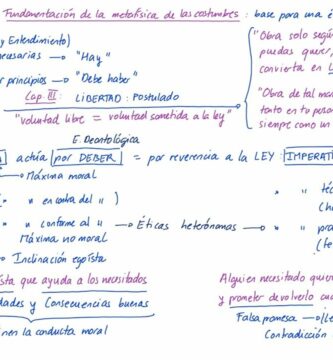 Fundamentación de la metafísica de las costumbres : base para una é
y Entendimiento)
ecesarias → "Hay"
r principios → "Debe haber"
Cap. III: LIBERTAD: Postulado
"voluntad libre = voluntad sometida a la ley"
"Obra solo segú
puedas querer,
convierta en L
"Obra de tal man
tanto en tu perso
siempre como un
E. Deontológica
actúa por DEBER = por reverencia a la LEY : IMPERATI
→ Máxima moral
" en contra del " )
" " conforme al " → Éticas heterónomas →
Máxima no moral
" téc
" pra
→ Inclinación egoísta
ista que ayuda a los necesitados
dades y Consecuencias buenas
nen la conducta moral
Alguien necesitado quier
y prometer devolverlo cua
Falsa promesa →
Contradicción